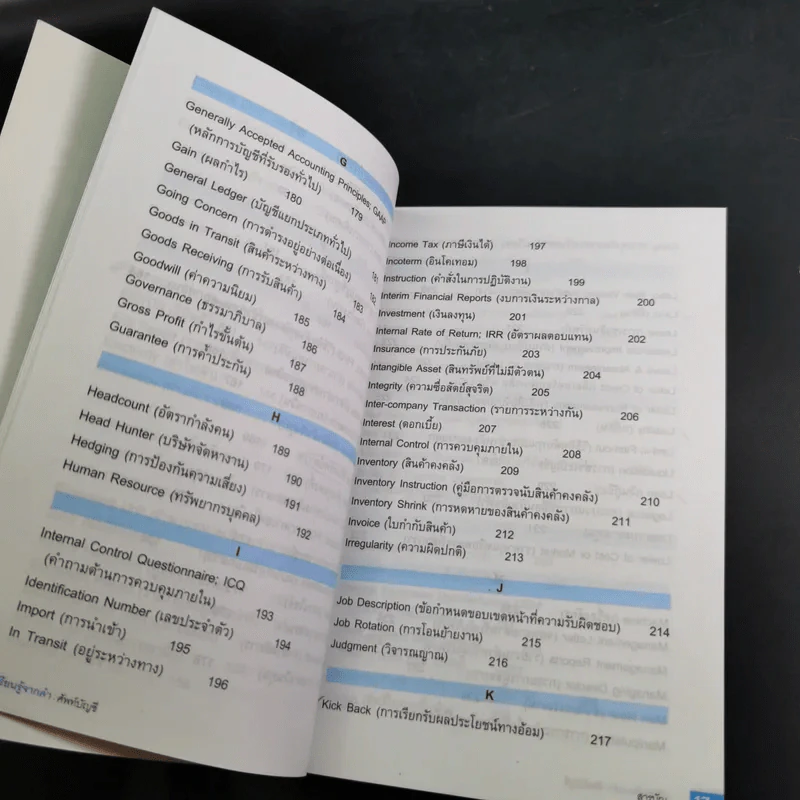 G
Generally Accepted Accounting Principles; GAAP
(หลักการบัญชีที่รับรองทั่วไป) 179
Gain (ผลกำไร) 180
General Ledger (บัญชีแยกประเภททั่วไป) 181
Going Concern (การดำรงอยู่อย่างต่อเนื่อง) 182
Goods in Transit (สินค้าระหว่างทาง) 183
Goods Receiving (การรับสินค้า) 184
Goodwill (ค่าความนิยม) 185
Governance (ธรรมาภิบาล) 186
Gross Profit (กำไรขั้นต้น) 187
Guarantee (การค้ำประกัน) 188
H
Headcount (อัตรากำลังคน) 189
Head Hunter (บริษัทจัดหางาน) 190
Hedging (การป้องกันความเสี่ยง) 191
Human Resource (ทรัพยากรบุคคล) 192
I
Internal Control Questionnaire; ICQ
(คำถามด้านการควบคุมภายใน) 193
Identification Number (เลขประจำตัว) 194
Import (การนำเข้า) 195
In Transit (อยู่ระหว่างทาง) 196
เรียนรู้จากคำ : ศัพท์บัญชี
Income Tax (ภาษีเงินได้) 197
Incoterm (อินโคเทอม) 198
Instruction (คำสั่งในการปฏิบัติงาน) 199
Interim Financial Reports (งบการเงินระหว่างกาล) 200
Investment (เงินลงทุน) 201
Internal Rate of Return; IRR (อัตราผลตอบแทน) 202
Insurance (การประกันภัย) 203
Intangible Asset (สินทรัพย์ที่ไม่มีตัวตน) 204
Integrity (ความซื่อสัตย์สุจริต) 205
Inter-company Transaction (รายการระหว่างกัน) 206
Interest (ดอกเบี้ย) 207
Internal Control (การควบคุมภายใน) 208
Inventory (สินค้าคงคลัง) 209
Inventory Instruction (คู่มือการตรวจนับสินค้าคงคลัง) 210
Inventory Shrink (การหดหายของสินค้าคงคลัง) 211
Invoice (ใบกำกับสินค้า) 212
Irregularity (ความผิดปกติ) 213
J
Job Description (ข้อกำหนดขอบเขตหน้าที่ความรับผิดชอบ) 214
Job Rotation (การโอนย้ายงาน) 215
Judgment (วิจารณญาณ) 216
K
Kick Back (การเรียกรับผลประโยชน์ทางอ้อม) 217
สารบัญ 17